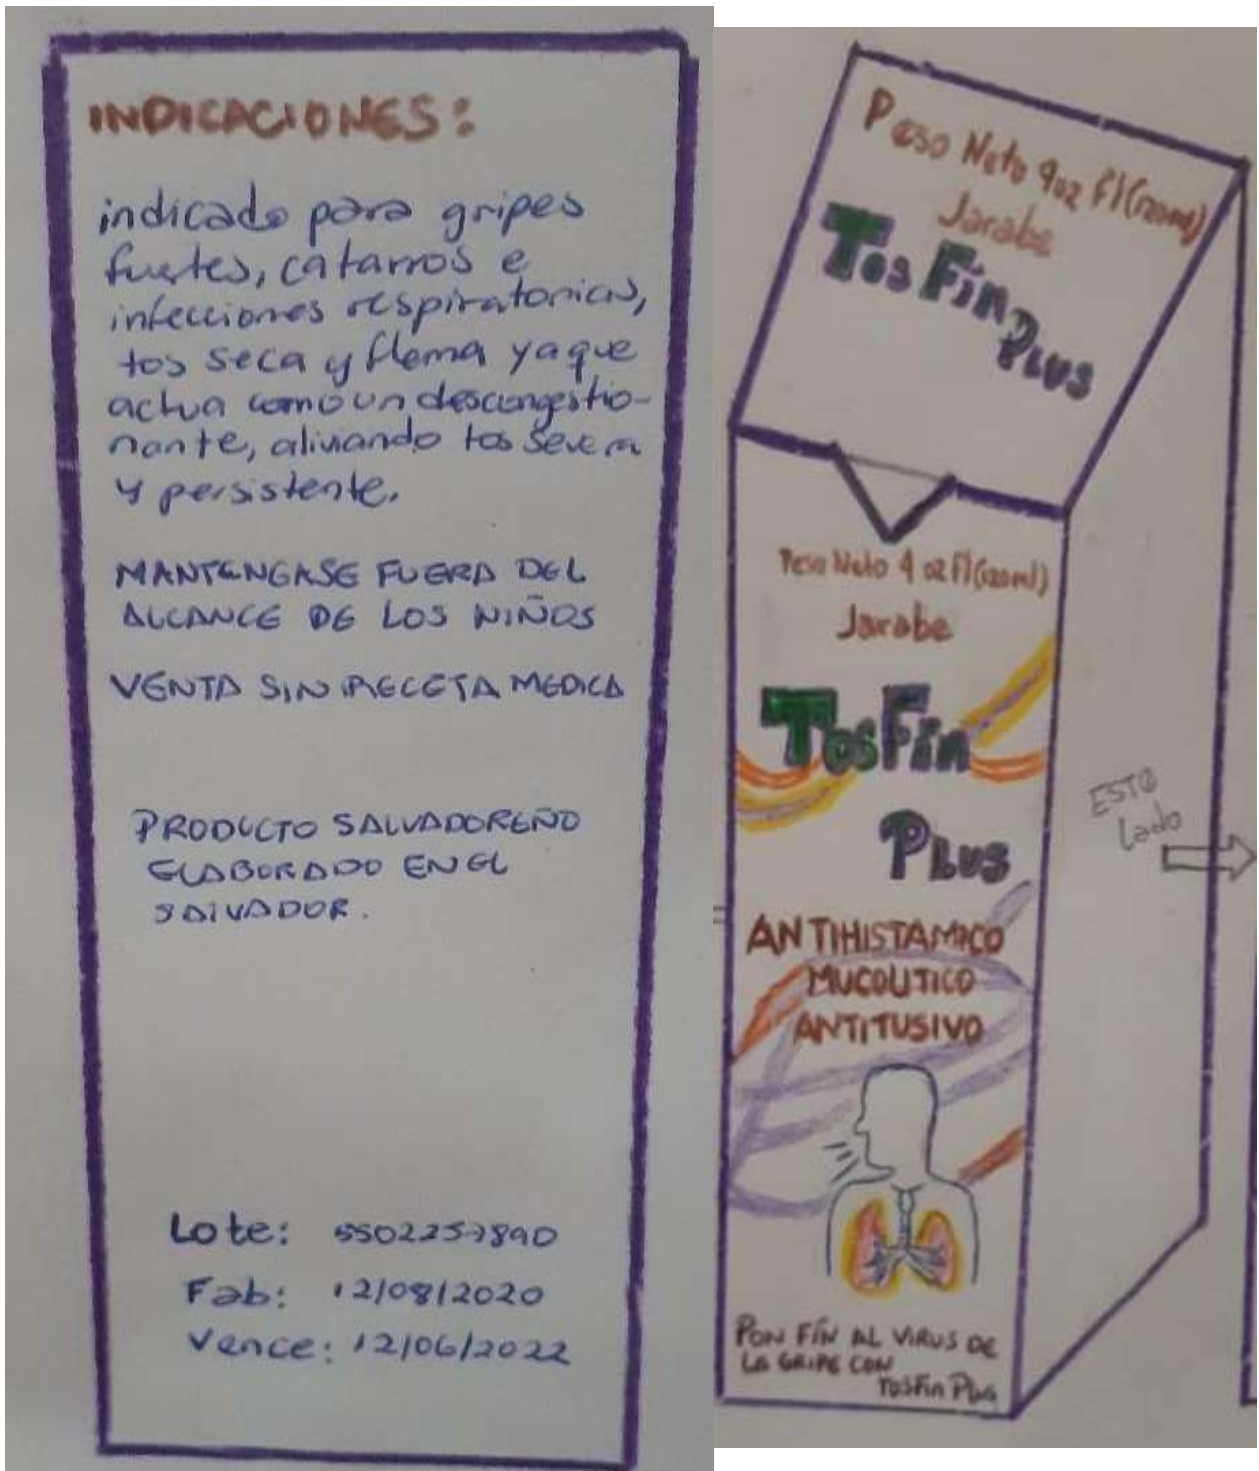 INDICACIONES:
indicado para gripes
fuertes, catarros e
infecciones respiratorias,
tos seca y flema ya que
actua como un descongestio-
nante, aliviando tos severa
y persistente.
MANTENGASE FUERA DEL
ALCANCE DE LOS NIÑOS
VENTA SIN RECETA MEDICA
PRODUCTO SALVADOREÑO
ELABORADO EN EL
SALVADOR.
Lote: 5502257890
Fab: 12/08/2020
Vence: 12/06/2022
Peso Neto 4oz fl (120ml)
Jarabe
TosFin
PLUS
Peso Neto 4 oz Fl (120ml)
Jarabe
TosFin
PLUS
ANTIHISTAMICO
MUCOLITICO
ANTITUSIVO
PON FÍN AL VIRUS DE
LA GRIPE CON
TOSFin Plus
ESTE
lado